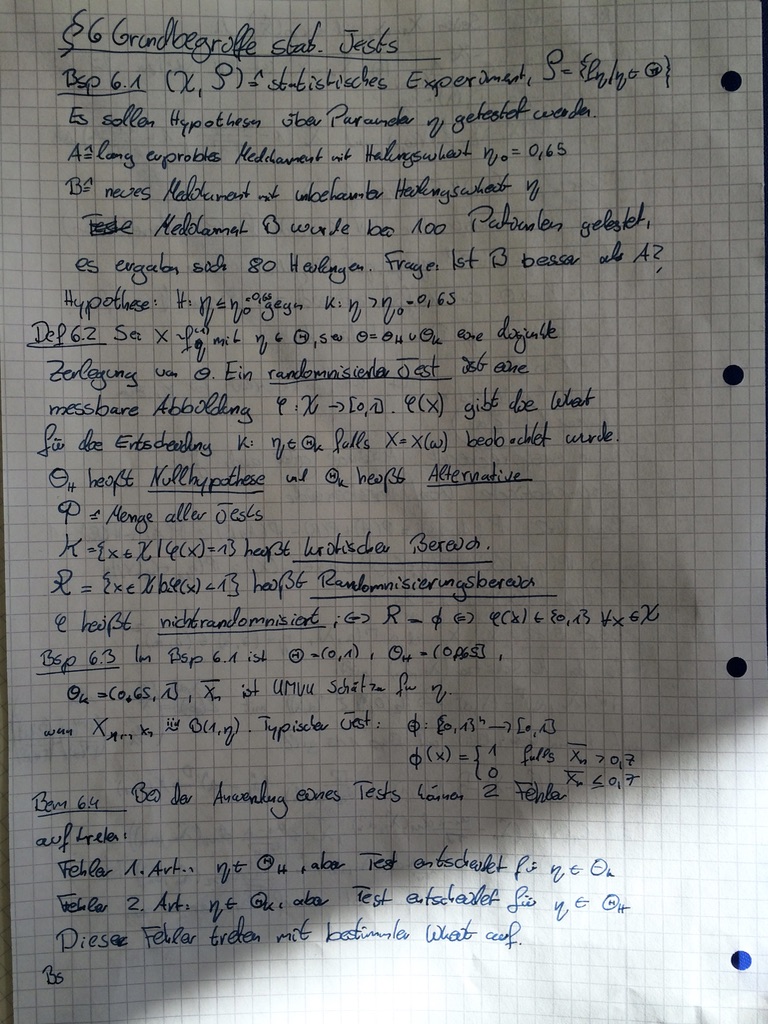 §6 Grundbegriffe stat. Tests
Bsp 6.1 (X, P) ≙ statistisches Experiment, P = {P_η | η ∈ Θ}
Es sollen Hypothesen über Parameter η getestet werden.
A ≙ lang erprobtes Medikament mit Heilungswkeit η₀ = 0,65
B ≙ neues Medikament mit unbekannter Heilungswkeit η
Medikament B wurde bei 100 Patienten getestet,
es ergaben sich 80 Heilungen. Frage: Ist B besser als A?
Hypothese: H: η ≤ η₀ = 0,65 gegen K: η > η₀ = 0,65
Def 6.2 Sei X mit η ∈ Θ, sei Θ = Θ_H ∪ Θ_K eine disjunkte
Zerlegung von Θ. Ein randomnisierter Test ist eine
messbare Abbildung φ: X → [0,1]. φ(x) gibt die Wkeit
für die Entscheidung K: η ∈ Θ_K falls X = X(ω) beobachtet wurde.
Θ_H heißt Nullhypothese und Θ_K heißt Alternative
Φ ≙ Menge aller Tests
K = {x ∈ X | φ(x) = 1} heißt kritischer Bereich.
R = {x ∈ X | 0 < φ(x) < 1} heißt Randomnisierungsbereich
φ heißt nichtrandomnisiert :⇔ R = ∅ ⇔ φ(x) ∈ {0,1} ∀x ∈ X
Bsp 6.3 Im Bsp 6.1 ist Θ = (0,1), Θ_H = (0,0.65],
Θ_K = (0.65, 1], X̄_n ist UMVU Schätzer für η.
wenn X₁,…, X_n iid B(1,η). Typischer Test: ϕ: {0,1}ⁿ → [0,1]
ϕ(x) = { 1 falls X̄_n > 0,7
0 X̄_n ≤ 0,7
Bem 6.4 Bei der Anwendung eines Tests können 2 Fehler
auftreten:
Fehler 1. Art: η ∈ Θ_H, aber Test entscheidet für η ∈ Θ_K
Fehler 2. Art: η ∈ Θ_K, aber Test entscheidet für η ∈ Θ_H
Diese Fehler treten mit bestimmter Wkeit auf.
Bs